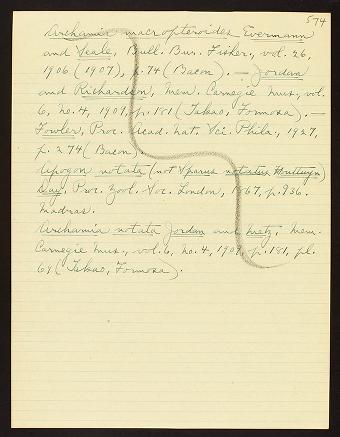 574
Archamia macropteroides Evermann
and Seale, Bull. Bur. Fisher., vol. 26,
1906 (1907), p. 74 (Bacon). — Jordan
and Richardson, Mem. Carnegie Mus., vol.
6, no. 4, 1909, p. 181 (Takao, Formosa). —
Fowler, Proc. Acad. Nat. Sci. Phila., 1927,
p. 274 (Bacon).
Apogon notata (not Sparus notatus Houttuyn)
Day, Proc. Zool. Soc. London, 1867, p. 936.
Madras.
Archamia notata Jordan and Metz, Mem.
Carnegie Mus., vol. 6, no. 4, 1909, p. 181, pl.
64 (Takao, Formosa).